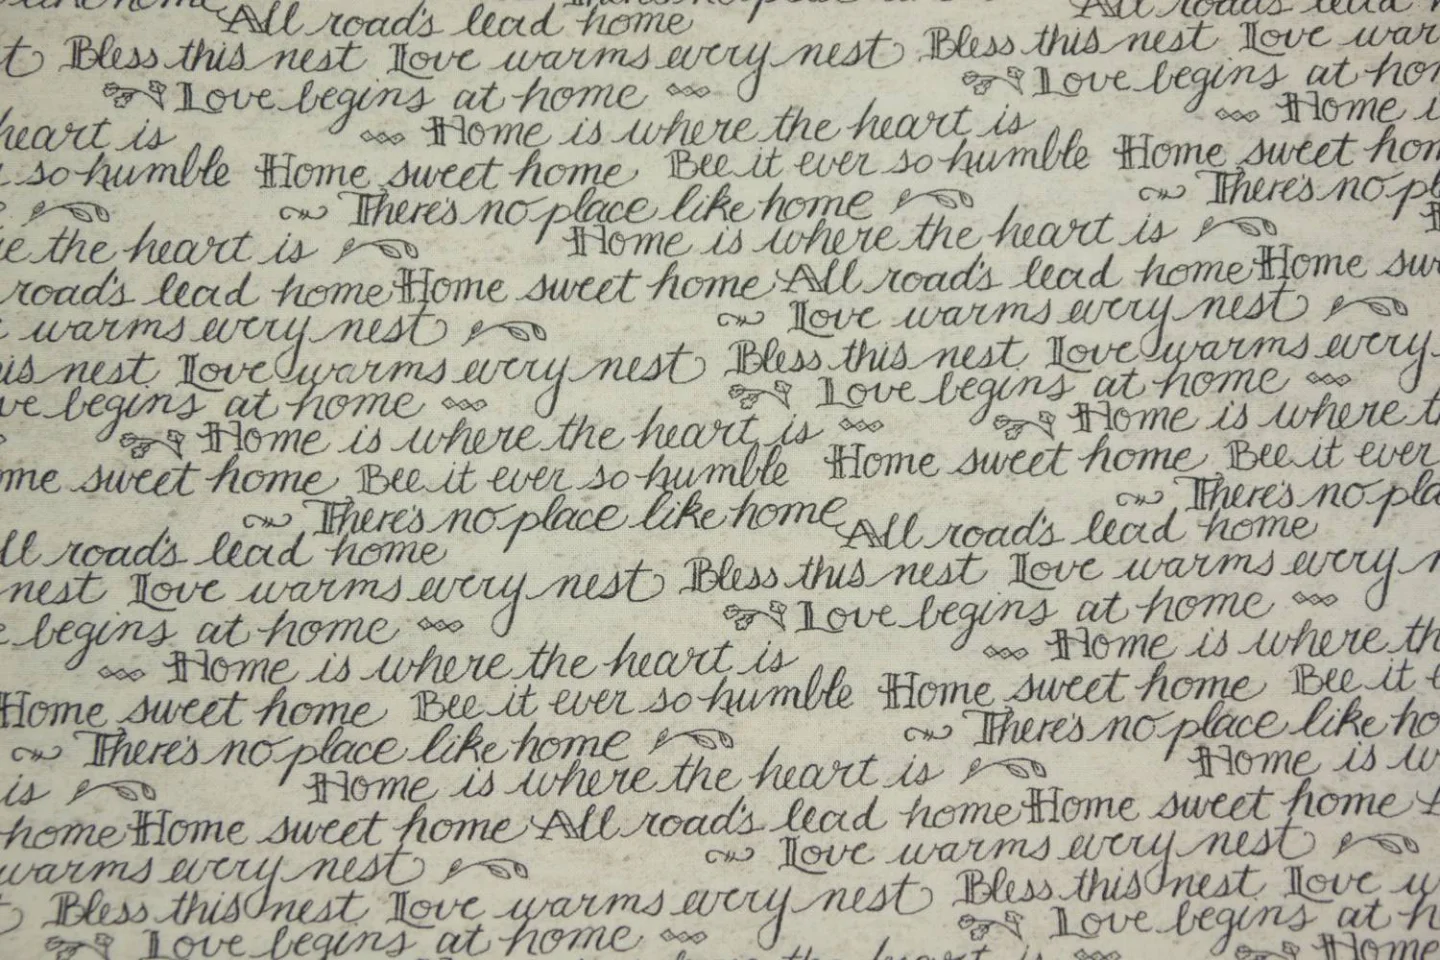 like home There's no place All road's lead h
All road's lead home
t Bless this nest Love warms every nest Bless this nest Love war
Love begins at home Love begins at hom
heart is Home is where the heart is Home i
so humble Home sweet home Bee it ever so humble Home sweet hom
There's no place like home There's no pl
e the heart is Home is where the heart is
road's lead home Home sweet home All road's lead home Home sw
warms every nest Love warms every nest
is nest Love warms every nest Bless this nest Love warms every
ve begins at home Love begins at home
Home is where the heart is Home is where t
ome sweet home Bee it ever so humble Home sweet home Bee it ever
There's no place like home There's no pla
ll road's lead home All road's lead home
nest Love warms every nest Bless this nest Love warms every n
e begins at home Love begins at home
Home is where the heart is Home is where th
Home sweet home Bee it ever so humble Home sweet home Bee it e
There's no place like home There's no place like ho
is Home is where the heart is Home is w
home Home sweet home All road's lead home Home sweet home
warms every nest Love warms every nest
Bless this nest Love warms every nest Bless this nest Love w
Love begins at home Love begins at h
Home